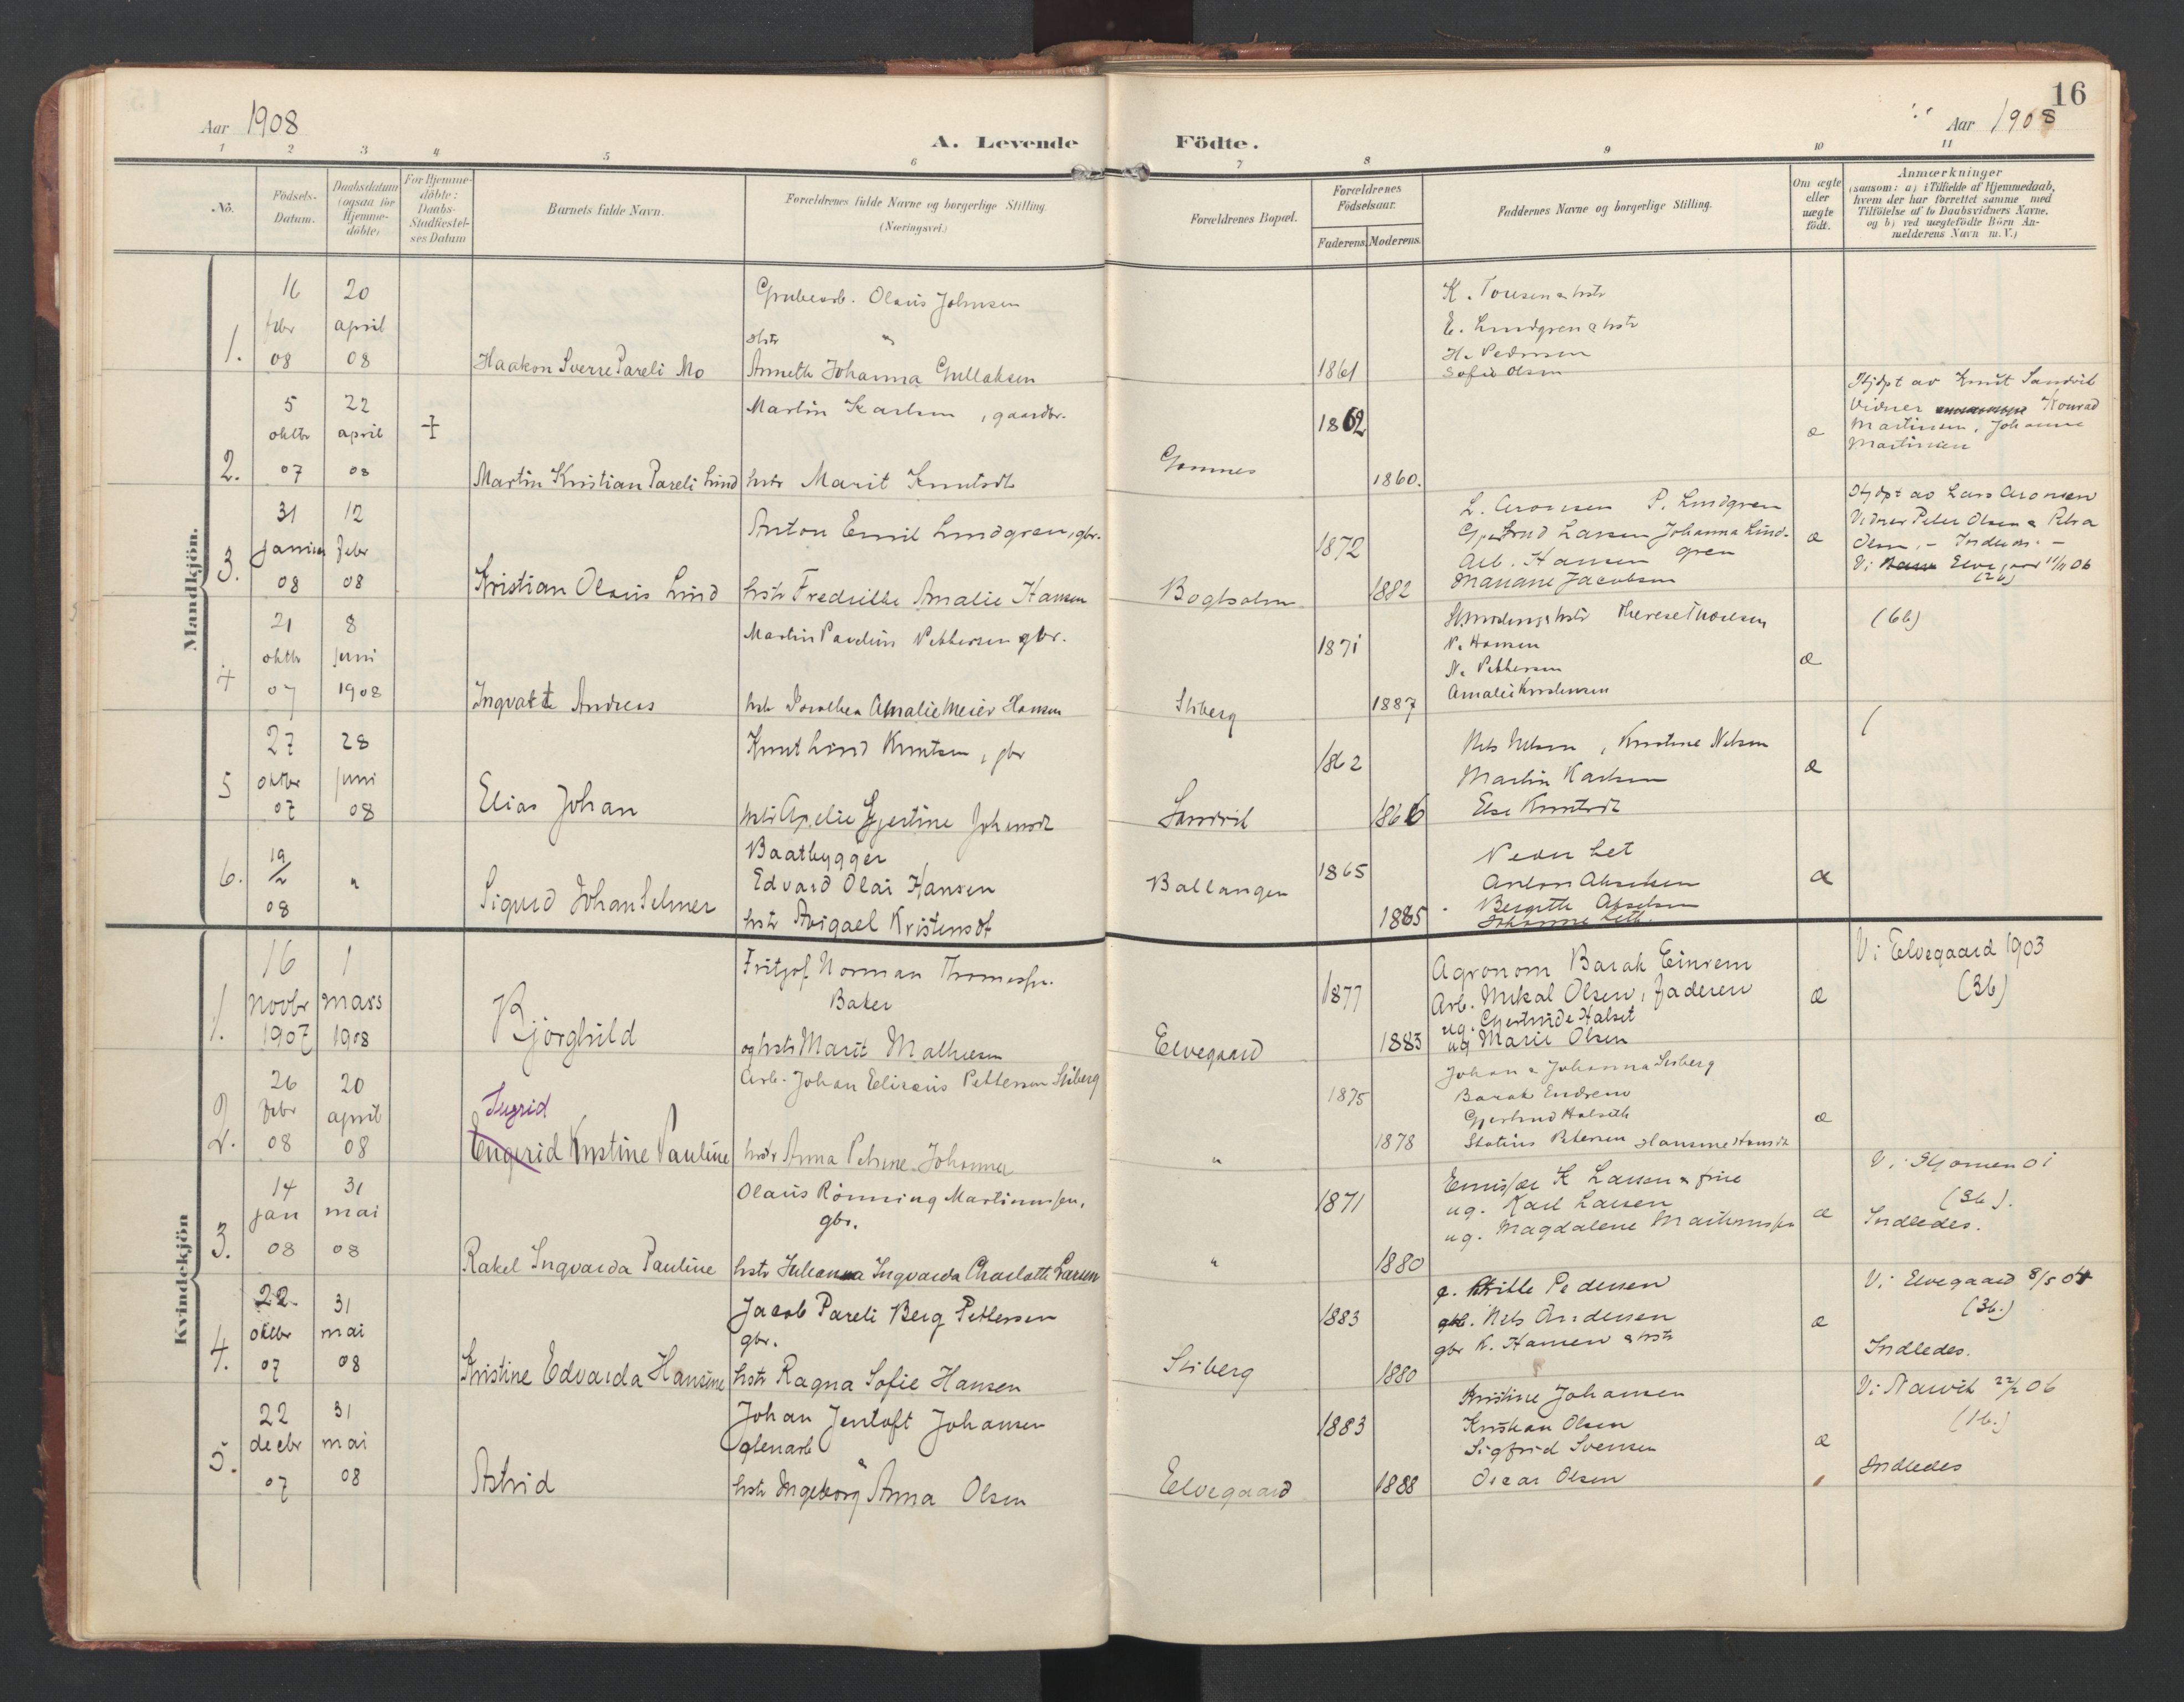 16
Aar 1908
Aar 1908
A. Levende Födte.
1 2 3 4 5 6 7 8 9 10 11
No.
Födsels-
Datum.
Daabsdatum
(ogsaa for
Hjemme-
döbte)
For Hjemme-
döbte:
Daabs-
Stadfæstel-
ses Datum
Barnets fulde Navn.
Forældrenes fulde Navne og borgerlige Stilling.
(Næringsvei.)
Forældrenes Bopæl.
Forældrenes
Födselsaar.
Faderens. Moderens.
Faddernes Navne og borgerlige Stilling.
Om ægte
eller
uægte
födt.
Anmærkninger
(saasom: a) i Tilfælde af Hjemmedaab,
hvem der har forrettet samme med
Tilföielse af to Daabsvidners Navne,
og b) ved uægtefödte Börn An-
melderens Navn m. V.)
Mandkjön.
1.
16
febr
08
20
april
08
Haakon Sverre Pareli Mo
Grubearb. Olaus Johnsen
hstr
Anneth Johanna Gullaksen
1861
E. Lundgren & hstr
H. Pedersen
Sofie Olsen
2.
5
oktbr
07
22
april
08
Martin Kristian Pareli Lind
Martin Karlsen, gaardbr.
hstr Marit Knutsdt
1862
1860.
æ
Hjdpt av Knut Sandvik
Vidner Konrad
Martinsen, Johanne
Martinsen
3.
31
januar
08
12
febr
08
Kristian Olaus Lind
Anton Emil Lundgren, gbr.
hstr Fredrikke Amalie Hansen
Bogholm
1872
1882
L. Aronsen P. Lundgren
Gjertrud Larsen Johanna Lind-
gren
Arb. Hansen
Mariane Jacobsen
æ
Hjdpt av Lars Aronsen
Vidner Peter Olsen & Petra
Olsen. - Indledn. -
Vi Elvegaard 11/11 06
(2b)
4
21
oktbr
07
8
juni
1908
Ingvald Andreas
Martin Paulius Pettersen gbr.
hstr Dorothea Amalie Meier Hansen
Skiberg
1871
1887
N. Hansen
N. Pettersen
Amalie Kristensen
æ
(6b)
5
27
oktbr
07
28
juni
08
Elias Johan
Knut Lind Knutsen, gbr
hstr Apelie Gjertine Johnsdt
Sandvik
1862
1866
Nils Nilsen, Kristine Nilsen
Martin Karlsen
Else Knutsdt
æ
6.
19
/2
08
"
Sigurd Johan Selmer
Baatbygger
Edvard Olai Hansen
hstr Abigael Kristensdt
Ballangen
1865
1885
Peder Let
Anton Akselsen
Bergitte Akselsen
Johanne Leth.
æ
Kvindekjön
1.
16
novbr
1907
1
mars
1908
Bjørghild
Fritjof Norman Thomassen.
Baker
og hstr Marit Mathisen
Elvegaard
1877
1883
Agronom Barak Einrem
Arb. Mikal Olsen, faderen
ug. Gjertrude Halset
ug Marie Olsen
æ
Vi Elvegaard 1903
(3b)
2.
26
febr
08
20
april
08
Ingrid
Engerid Kristine Pauline
Arb. Johan Elizeus Pettersen Skiberg
hstr Anna Petrine Johanna
"
1875
1878
Johan & Johanna Skiberg
Barak Endrem
Gjertrud Halseth
Statius Petersen Hansine Hansdt
æ
3.
14
jan
08
31
mai
08
Rakel Ingvarda Pauline
Olaus Rönning Martinussen,
gbr.
hstr Juleanna Ingvarda Charlotte Larsen
"
1871
1880
Emissær K Larsen & frue
ug. Karl Larsen
ug. Magdalene Martinussen
æ
Vi Skjomen 01
(3b).
Indledes.
4.
22
oktbr
07
31
mai
08
Kristine Edvarda Hansine
Jacob Pareli Berg Pettersen
gbr.
hstr Ragna Sofie Hansen
Skiberg
1883
1880
p. Mille Pedersen
gbr. Nils Andersen
gbr K. Hansen & hstr
æ
Vi Elvegaard 8/5 04
(3b.)
Indledes.
5.
22
decbr
07
31
mai
08
Astrid
Johan Jentoft Johansen
hstr Ingeborg Anna Olsen
Elvegaard
1883
1888
Kristine Johansen
Kristian Olsen
Sigfrid Svensen
Oscar Olsen
æ
Vi Narvik 22/2 06
(1b.)
Indledes